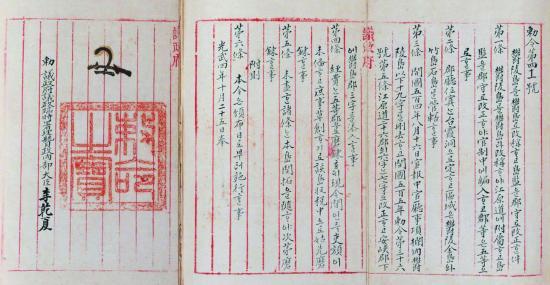 勅令第四十一號
鬱陵島를鬱島로改稱ᄒᆞ고島監을郡守로改正ᄒᆞᆫ件
第一條 鬱陵島를鬱島라改稱ᄒᆞ야江原道에附屬ᄒᆞ고島
監을郡守로改正ᄒᆞ야官制中에編入ᄒᆞ고郡等은五等으로
ᄒᆞᆯ事
第二條 郡廳位寘ᄂᆞᆫ台霞洞으로定ᄒᆞ고區域은鬱陵全島와
竹島石島를管轄ᄒᆞᆯ事
第三條 開國五百四年八月十六日官報中官廳事項欄內鬱
陵島以下十九字를刪去ᄒᆞ고開國五百五年勅令第三十六
號第五條江原道二十六郡의六字ᄂᆞᆫ七字로改正ᄒᆞ고安峽郡下
에鬱島郡三字를添入ᄒᆞᆯ事
議政府
第四條 經費ᄂᆞᆫ五等郡으로磨鍊호ᄃᆡ現今間인즉吏額이
未備ᄒᆞ고庶事草創ᄒᆞ기로該島收稅中으로姑先磨
鍊ᄒᆞᆯ事
第五條 未盡ᄒᆞᆫ諸條ᄂᆞᆫ本島開拓을隨ᄒᆞ야次第磨
鍊ᄒᆞᆯ事
附則
第六條 本令은頒布日로봇터施行ᄒᆞᆯ事
光武四年十月二十五日奉
議政府
勅命之寶
勅 議政府議政臨時署理贊政內部大臣李乾夏